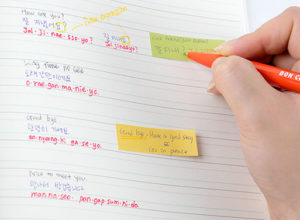 How are you?
잘 지냈어요?
Jal · Ji · nae · sseo · yo?
잘 지내요?
Jal jinaeyo?
Long time no see
오랜만이에요
o · rae · gan · ma · nie · yo.
Good bye.
안녕히 가세요.
an · nyeong · hi ga · se · yo.
Good bye, Have a good day
or
Go in peace
Nice to meet you.
만나서 반갑습니다.
man · na · seo · ban · gap · sum · ni · da.